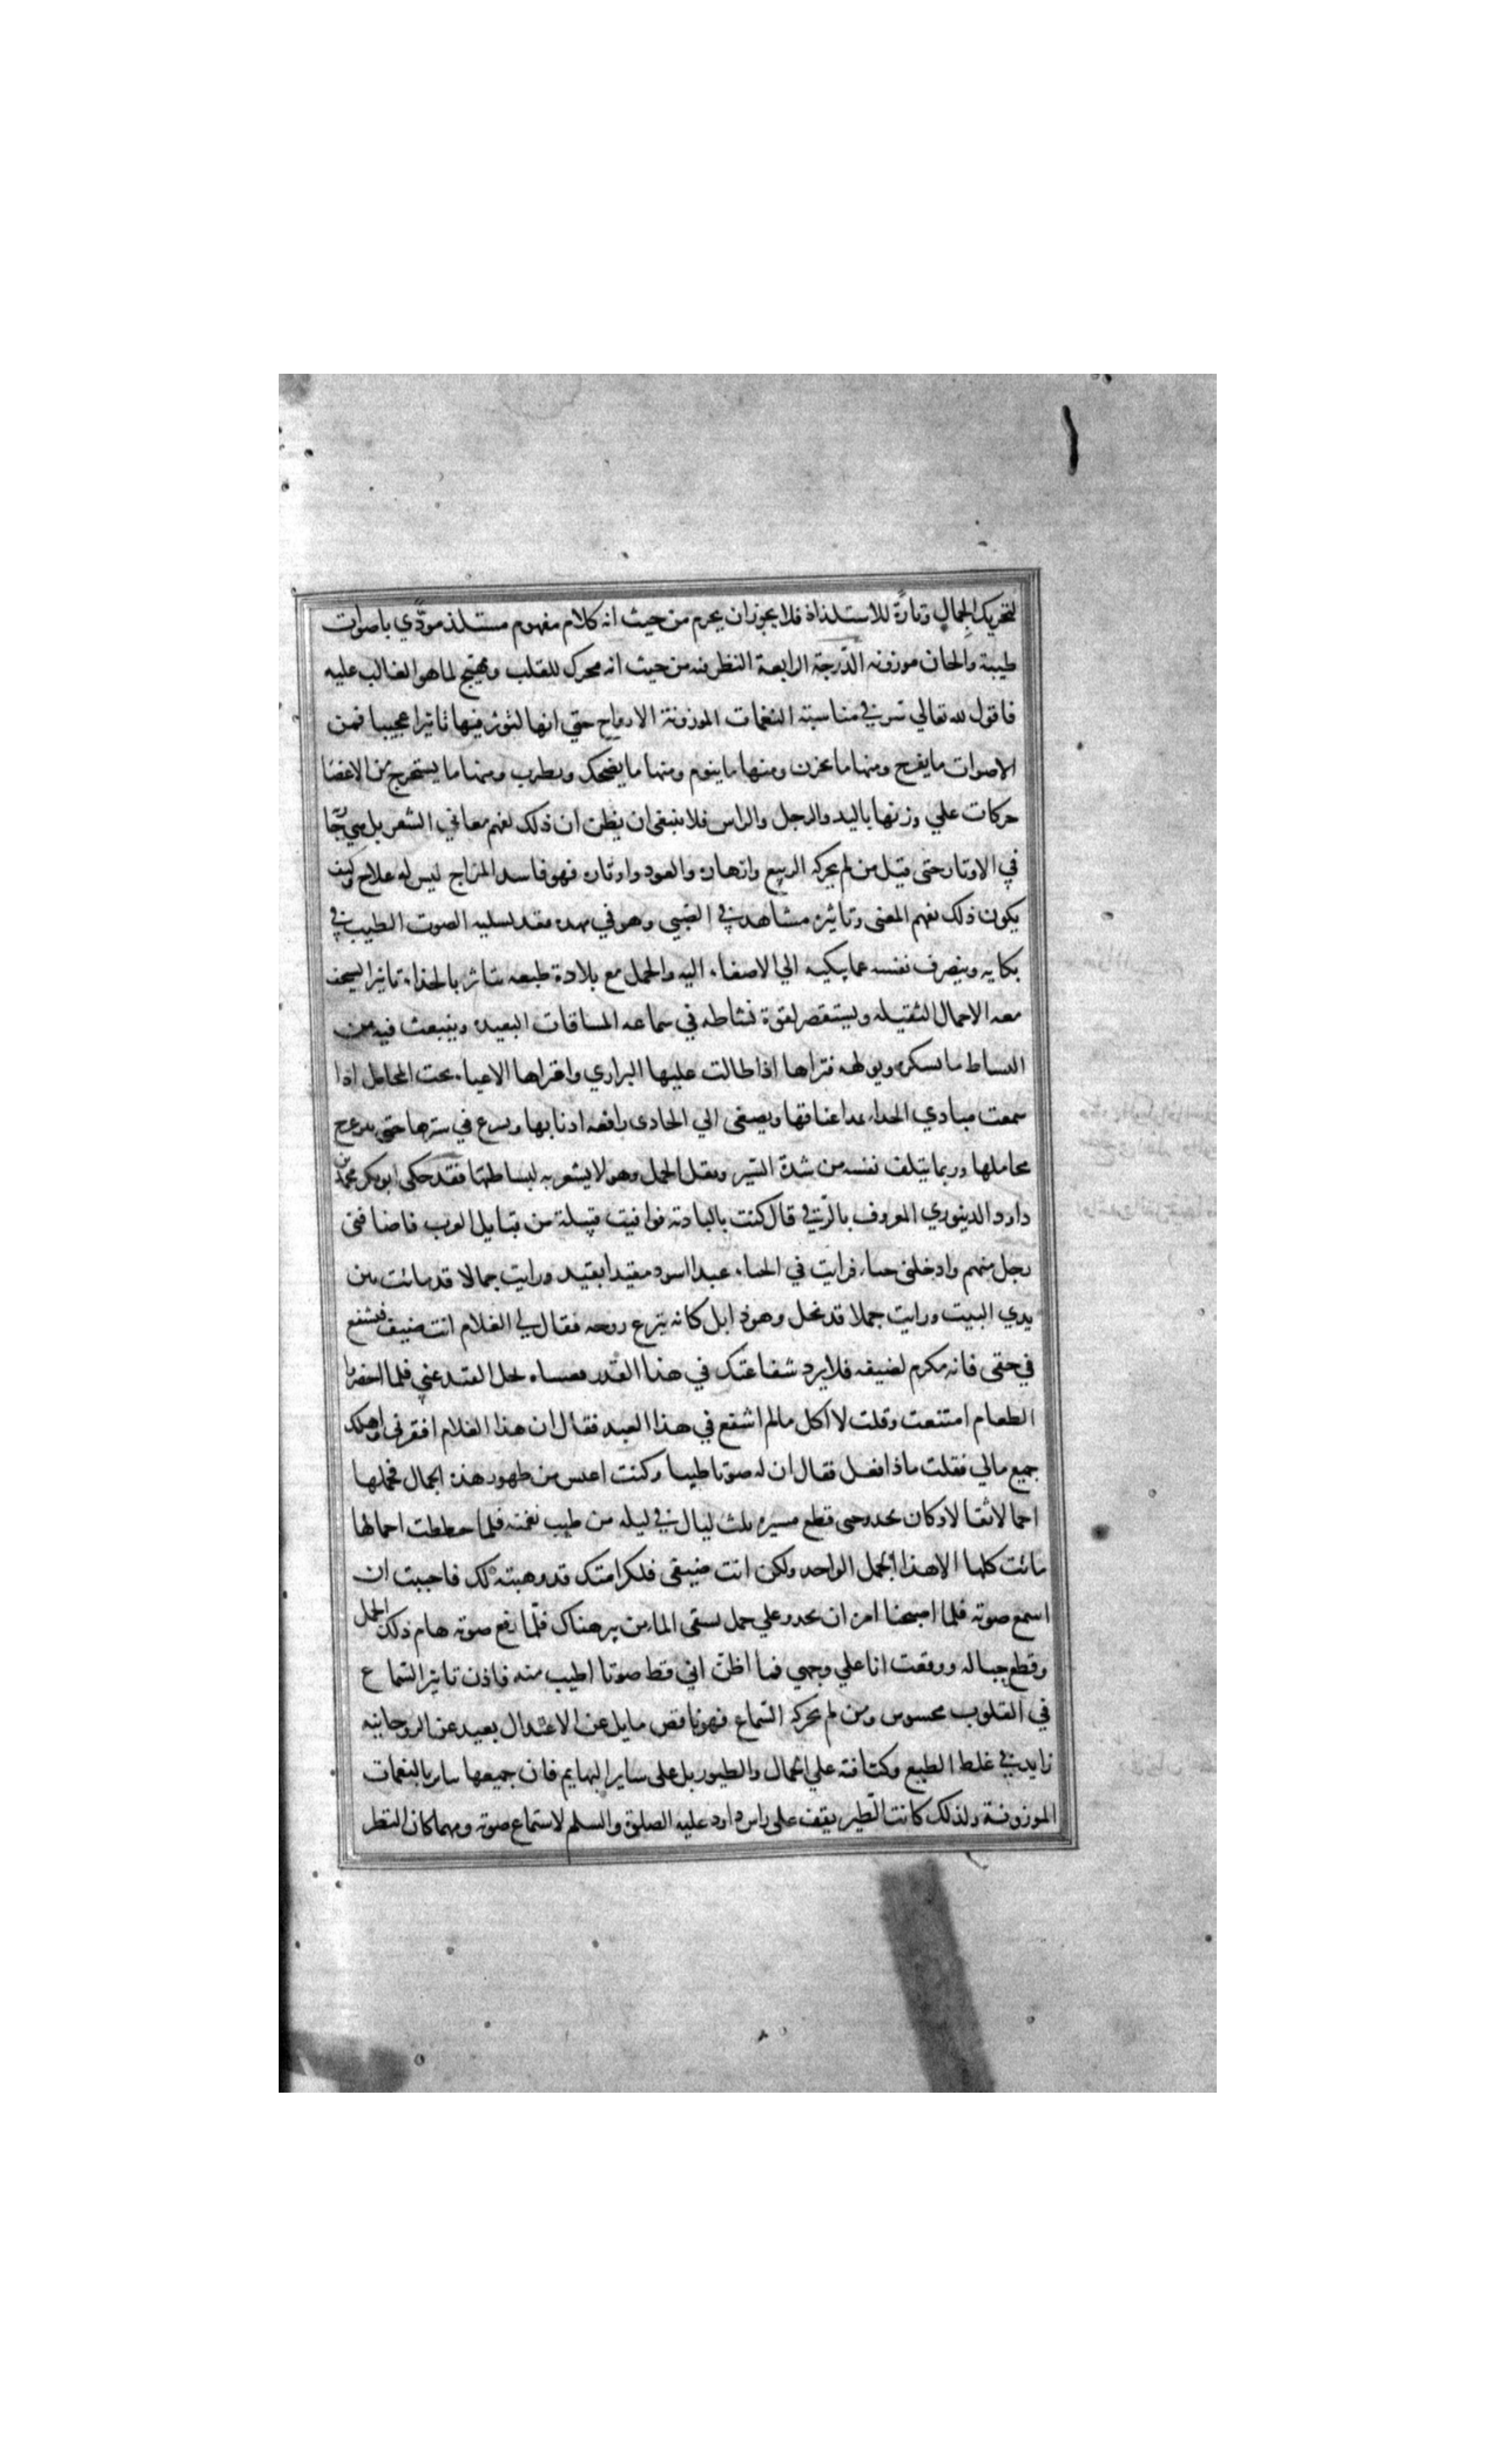 لتحريك الجمال وتارةً للاستلذاذ فلا يجوز ان يحرم من حيث انه كلام مفهوم مستلذ مودّي باصوات
طيبة والحان موزونه الدّرجة الرابعة النظر فيه من حيث انه محرك للقلب ومهيّج لما هو الغالب عليه
فاقول لله تعالي سر في مناسبة النغمات الموزونة الارواح حتي انها لتوثر فيها تاثيرا عجيبا فمن
الاصوات ما يفرح ومنها ما يحزن ومنها ما ينوم ومنها ما يضحك ويطرب ومنها ما يستخرج من الاعضا
حركات علي وزنها باليد والرجل والراس فلا ينبغي ان يظن ان ذلك لفهم معاني الشعر بل هي
في الاوتار حتي قيل من لم يحركه الربيع وازهاره والعود واوتاره فهو فاسد المزاج ليس له علاج وكيف
يكون ذلك لفهم المعني وتاثيره مشاهد في الصّبي وهو في مهده فقد يسليه الصوت الطيب في
بكايه وينصرف نفسه عما يبكيه الي الاصغاء اليه والجمل مع بلادة طبعه يتاثر بالحداء تاثيرا يستخف
معه الاحمال الثقيله ويستقصر لقوة نشاطه في سماعه المسافات البعيده وينبعث فيه من
النساط ما يسكره ويولهه فتراها اذا طالت عليها البراري واعتراها الاعياء تحت المحامل اذا
سمعت مبادي الحداء يمد اعناقها ويصغي الي الحادي رافعه اذنابها ويسرع في سيرها حتي يتزعزع
محاملها وربما يتلف نفسه من شدة السّير وثقل الحمل وهو لا يشعر به لبساطتها فقد حكي ابو بكر محمد بن
داود الدينوري المعروف بالرقّي قال كنت بالباديه فوافيت قبيلة من قبايل العرب فاضافني
رجل منهم وادخلني خباء فرايت في الخباء عبدا اسود مقيدا بقيد ورايت جمالا قد ماتت بين
يدي البيت ورايت جملا قد نحل وهو ذابل كانه ينزع روحه فقال لي الغلام انت ضيف فتشفع
في حقي فانه مكرم لضيفه فلا يرد شفاعتك في هذا القدر فعساه يحل القيد عني فلما احضروا
الطعام امتنعت وقلت لا اكل ما لم اشفع في هذا العبد فقال ان هذا الغلام افقرني واهلك
جميع مالي فقلت ماذا فعل فقال ان له صوتا طيبا وكنت اعيس من ظهور هذه الجمال فحملها
احمالا ثقالا وكان يحدو حتى قطع مسيره ثلث ليال في ليله من طيب نغمته فلما حططت احمالها
ماتت كلها الا هذا الجمل الواحد ولكن انت ضيفي فلكرامتك قد وهبته لك فاحببت ان
اسمع صوته فلما اصبحنا امره ان يحدو علي جمل يستقي الماء من بير هناك فلمّا رفع صوته هام ذلك الجمل
وقطع حباله ووقعت انا علي وجهي فما اظن اني قط صوتا اطيب منه فاذن تاثير السّماع
في القلوب محسوس ومن لم يحركه السّماع فهو ناقص مايل عن الاعتدال بعيد عن الروحانيه
زايد في غلط الطبع وكثافته علي الجمال والطيور بل علي ساير البهايم فان جميعها ساير بالنغمات
الموزونة ولذلك كانت الطير يقف علي راس داود عليه الصلوة والسلم لاستماع صوته ومهما كان النظر